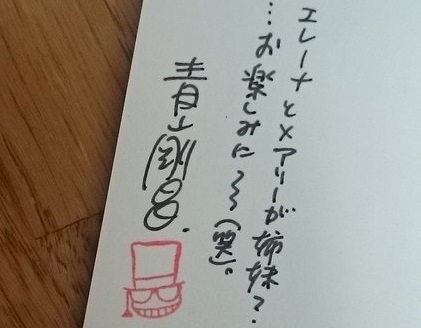 エレーナとメアリーが姉妹？
…お楽しみに〜〜(笑)。
青山剛昌.